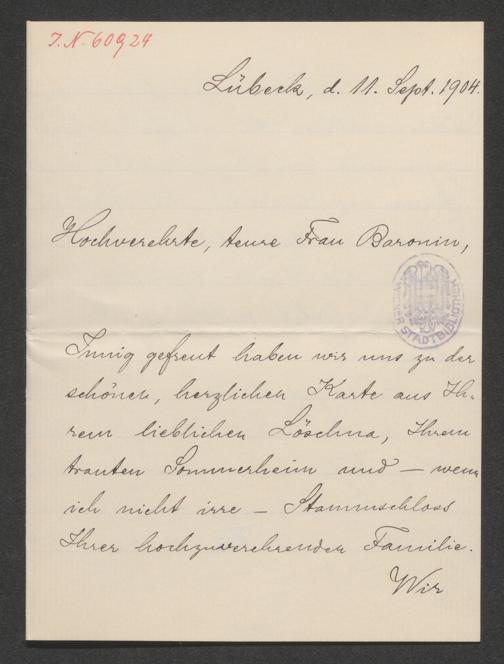 I. N. 60924
Lübeck, d. 11. Sept. 1904.
Hochverehrte, teure Frau Baronin,
WIENER STADTBIBLIOTHEK
Innig gefreut haben wir uns zu der
schönen, herzlichen Karte aus Ih-
rem lieblichen Löschna, Ihrem
trauten Sommerheim und – wenn
ich nicht irre – Stammschloss
Ihrer hochzuverehrenden Familie.
Wir